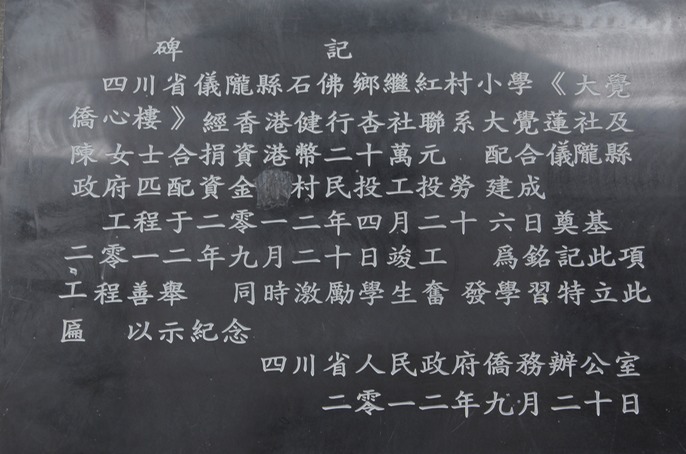 碑 記
四川省儀隴縣石佛鄉繼紅村小學《大覺
僑心樓》經香港健行杏社聯系大覺蓮社及
陳女士合捐資港幣二十萬元 配合儀隴縣
政府匹配資金 村民投工投勞 建成
工程于二零一二年四月二十六日奠基
二零一二年九月二十日竣工 爲銘記此項
工程善舉 同時激勵學生奮 發學習特立此
匾 以示紀念
四川省人民政府僑務辦公室
二零一二年九月二十日